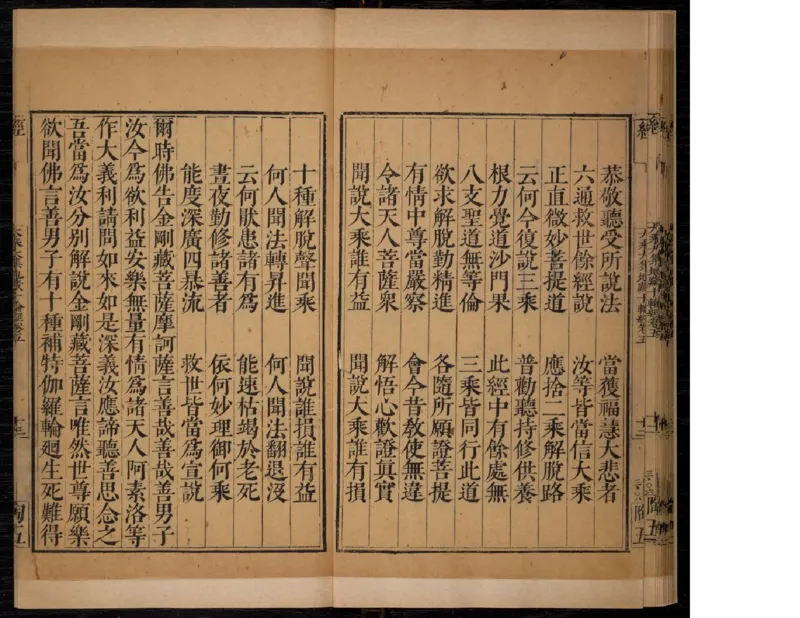 恭敬聽受所說法　當獲福慧大悲者
六通救世餘經說　汝等皆當信大乘
正直微妙菩提道　應捨二乘解脫路
云何今復說三乘　普勸聽持修供養
根力覺道沙門果　此經中有餘處無
八支聖道無等倫　三乘皆同行此道
欲求解脫勤精進　各隨所願證菩提
有情中尊當嚴察　會今昔教使無違
令諸天人菩薩衆　解悟心軟證真實
聞說大乘誰有益　聞說大乘誰有損
十種解脫聲聞乘　聞說誰損誰有益
何人聞法轉昇進　何人聞法翻退沒
云何猒患諸有爲　能速枯竭於老死
晝夜勤修諸善者　依何妙理御何乘
能度深廣四暴流　救世皆當爲宣說
爾時佛告金剛藏菩薩摩訶薩言善哉善哉善男子
汝今爲欲利益安樂無量有情爲諸天人阿素洛等
作大義利請問如來如是深義汝應諦聽善思念之
吾當爲汝分別解說金剛藏菩薩言唯然世尊願樂
欲聞佛言善男子有十種補特伽羅輪迴生死難得